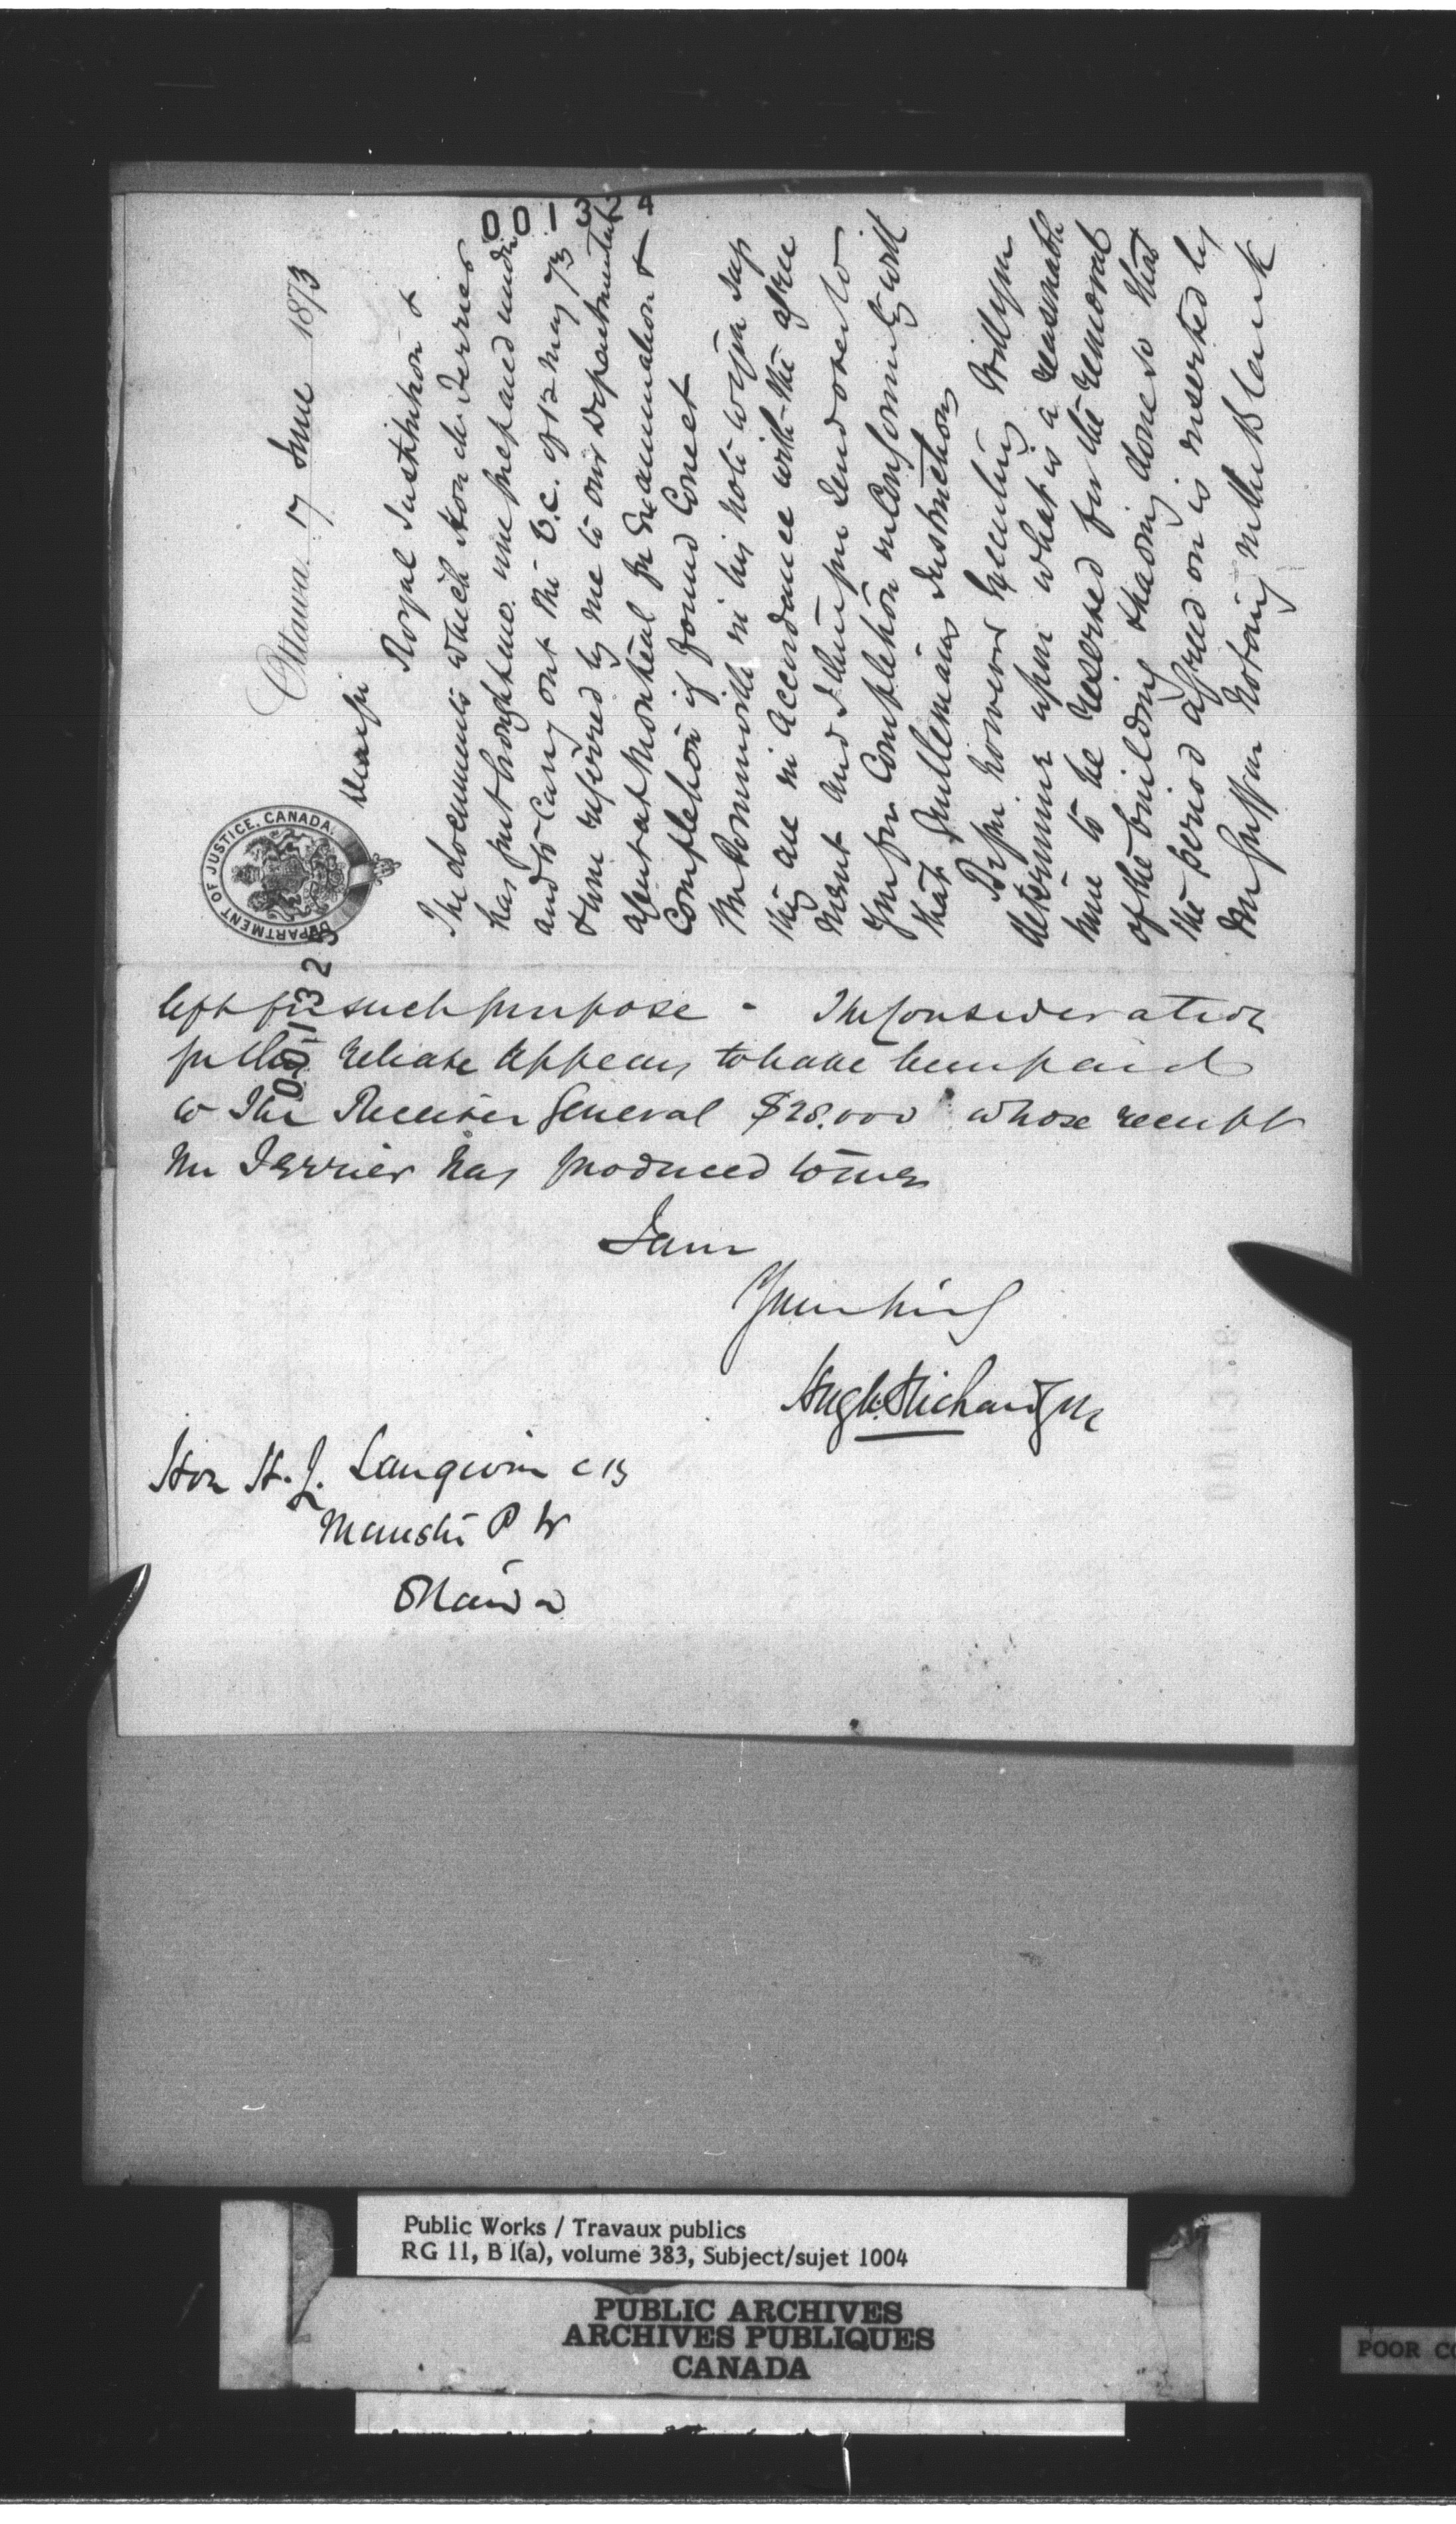 001324
DEPARTMENT OF JUSTICE, CANADA.
Ottawa. 17 June 1873
Dear Sir
Royal Institution &
The documents which Hon Mr Ferrier
has just brought me were prepared under
and to carry out the O.C. of 12 May 73
& were referred by me to our Departmental
agent at Montreal for Examination &
Completion if found Correct
in his note
they are in accordance with the agree
ment and I therefore send over to
you for Completion in Conformity with
that Gentlemans Instructions
Before however Executing will you
determine upon what is a reasonable
time to be reserved for the removal
of the building & having done so that
the period agreed on is inserted by
in the Blank
001323
left for such purpose - The Consideration
for the release appears to have been paid
to The Receiver General $28.000 whose receipt
Mr Ferrier has produced to me
I am
Yours
Hugh Richardson
Hon H. L. Langevin C B
Minister P W
Ottawa
Public Works / Travaux publics
RG 11, B 1(a), volume 383, Subject/sujet 1004
PUBLIC ARCHIVES
ARCHIVES PUBLIQUES
CANADA
POOR CO